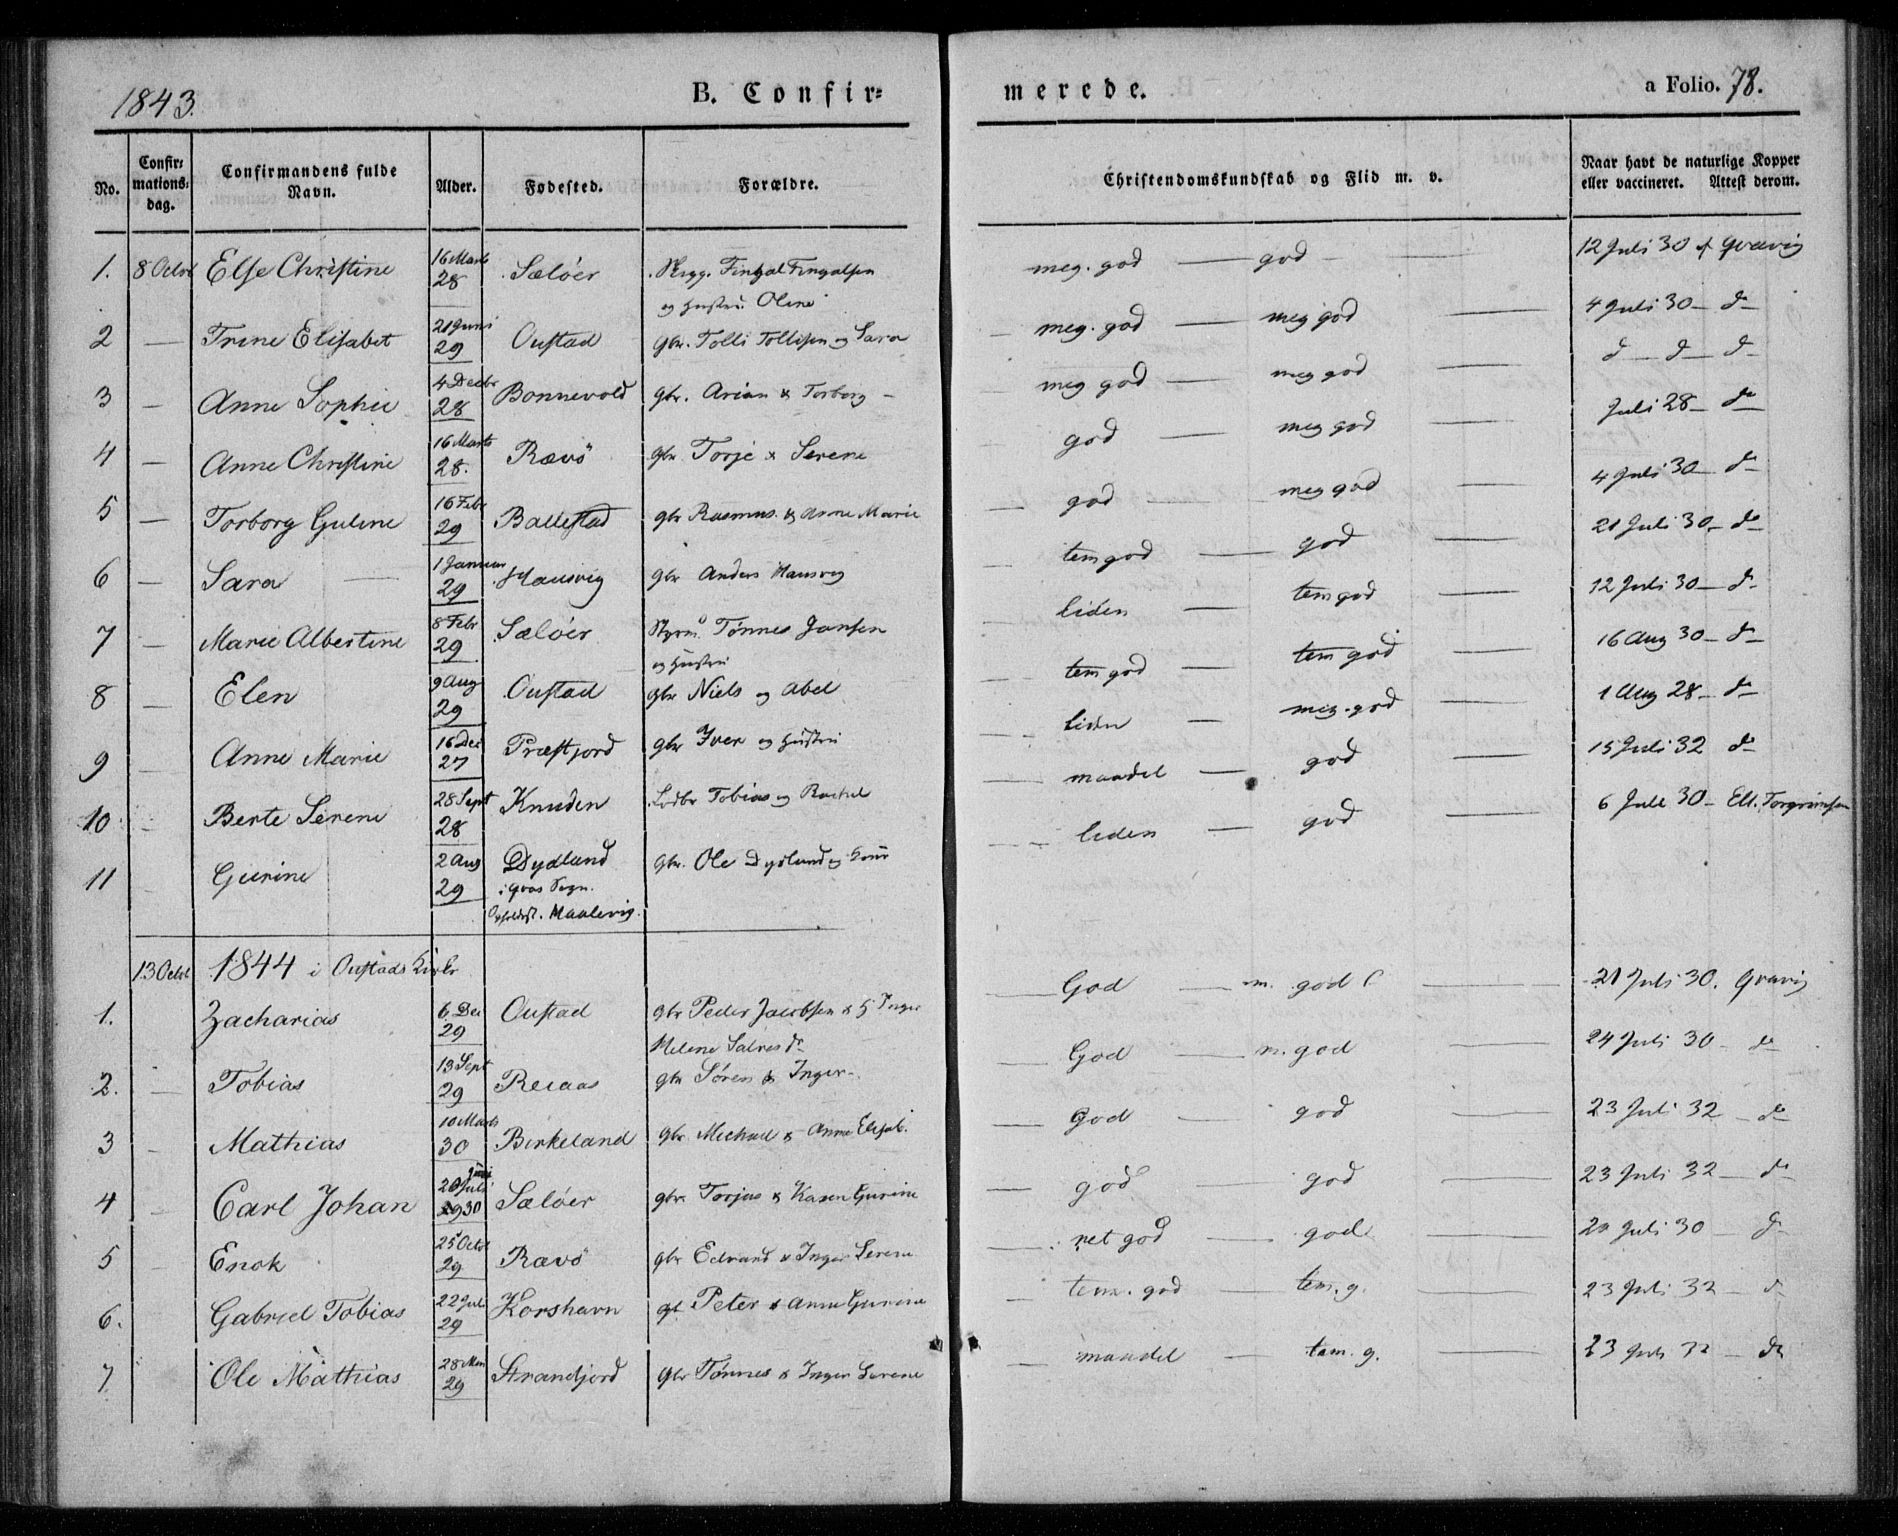 1843.
B. Confirmerede.
a Folio. 78.
No. | Confirmations-dag. | Confirmandens fulde Navn. | Alder. | Fødested. | Forældre. | Christendomskundskab og Flid m. v. | Naar havt de naturlige Kopper eller vaccineret. Attest derom.
1. | 8 Octob | Else Christine | 16 Marts 28 | Sælöer | Fingal Fingalsen og Hustru Oline | meg. god — god — | 12 Juli 30 af Qvavig
2 | — | Trine Elisabet | 21 Juni 29 | Oustad | gbr. Tolli Tollisen og Sara | meg. god — meg god — | 4 Juli 30 — do
3 | — | Anne Sophie | 4 Decbr 28 | Bonnevold | gbr. Arian & Torborg — | meg god — meg god | d — d — d
4 | — | Anne Christine | 16 Marts 28. | Rævö | gbr Torje & Serene | god — meg god — | Juli 28 — do
5 | — | Torborg Guline | 16 Febr 29 | Ballestad | gbr Rasmus & Anne Marie | god — meg god — | 4 Juli 30 — do
6 | — | Sara — | 1 Januar 29 | Hausvig | gbr Anders Hausvig | tem god — god — | 21 Juli 30 — do
7 | — | Marie Albertine | 8 Febr 29 | Sælöer | Styrm. Tønnes Jansen og Hustru | liden — tem god — | 12 Juli 30 — do
8 | — | Elen | 9 Aug 29 | Oustad | gbr Niels og Abel | tem god — tem god — | 16 Aug 30 — do
9 | — | Anne Marie | 16 Dec 27 | Præstjord | gbr Iver og Hustru | liden — meg. god — | 1 Aug 28 — do
10 | — | Berte Serene | 28 Sept 28 | Knuden | Tobias og Rachel | maadel — god — | 15 Juli 32 do
11 | Gurine | 2 Aug 29 | Dydland i Qvas Sogn. Opholdst. Maalevig. | gbr. Ole Dydland og Kone | liden — god — | 6 Juli 30 — Ell. Torgrimsen
13 Octob | 1844 i Oustads Kirke
1. | Zacharias | 6 Dec 29 | Oustad | gbr Peder Jacobsen & H Inger Helene Salves do | God — m. god | 21 Juli 30. Qvavig
2. | — | Tobias | 13 Sept 29 | Reiaas | gbr Søren & Inger — | God — m. god — | 24 Juli 30 — do
3 | — | Mathias | 10 Marts 30 | Birkeland | gbr. Michael & Anne Elisab. | God — god — | 23 Juli 32 — do
4 | — | Carl Johan | 20 Juli Juni 29 30 | Sælöer | gbr. Torjus & Karen Gurine | god — god — | 23 Juli 32 — do
5 | — | Enok | 25 Octob 29 | Rævö | gbr Edvard & Inger Serene | ret god — god — | Juli 30 — do
6. | Gabriel Tobias | 22 Jul 29 | Korshavn | gb Peter & Anne Gurine | tem. god — tem. g. — | 23 Juli 32 — do
7. | Ole Mathias | 28 29 | Strandfjord | gbr Tønnes & Inger Serene | maadel — tem. g. — | 23 Juli 32 — do